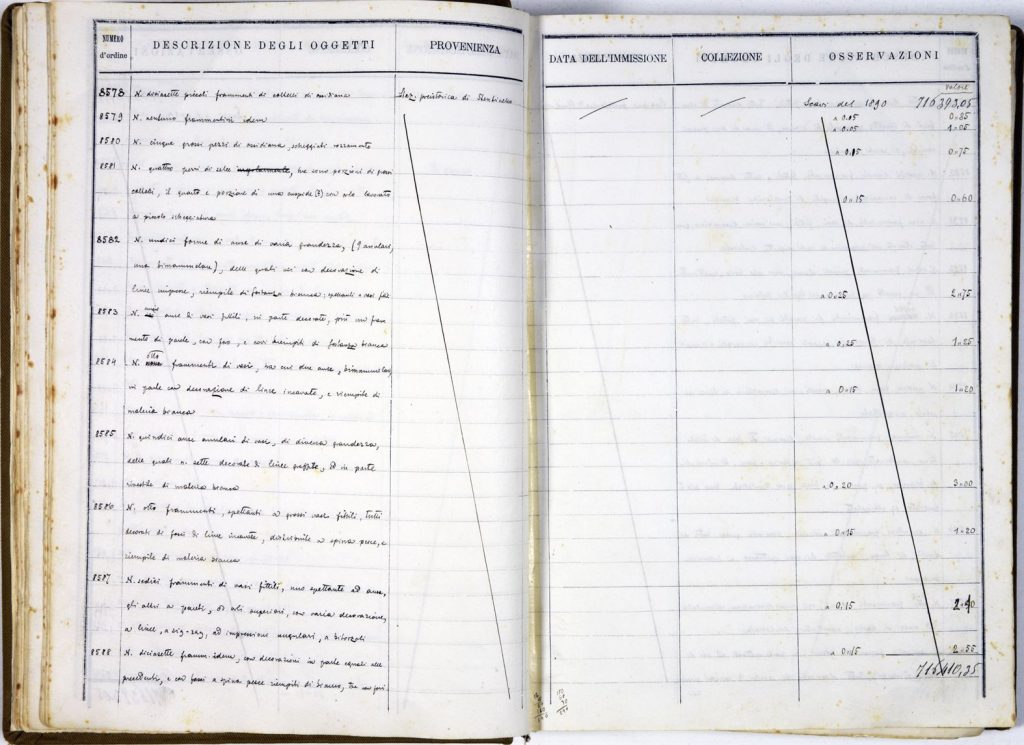 NUMERO d'ordine
DESCRIZIONE DEGLI OGGETTI
PROVENIENZA
DATA DELL'IMMISSIONE
COLLEZIONE
OSSERVAZIONI
Valore
8578 N. diciasette piccoli frammenti di coltelli di ossidiana
Staz. preistorica di Stentinello
Scavi del 1890 716393,05
8579 N. ventuno frammentini idem
a 0.05 0.85
a 0.05 1.05
8580 N. cinque grossi pezzi di ossidiana, scheggiati rozzamente
a 0.15 0.75
8581 N. quattro pezzi di selce, tre sono porzioni di grossi
coltelli, il quarto è porzione di una cuspide (?) con orlo lavorato
a piccole scheggiature
0.15 0.60
8582 N. undici forme di anse di varia grandezza, (9 anulari,
una bimammellare), delle quali sei con decorazione di
linee impresse, riempite di sostanza bianca; spettanti a vasi fitt
a 0.25 2.75
8583 N. anse di vasi fittili, in parte decorate, più un fram
mento di parete, con foro, e così riempiti di sostanza bianca
a 0,25 1.25
8584 N. otto frammenti di vasi, tra cui due anse, bimammellari,
in parte con decorazione di linee incavate, e riempite di
materia bianca
a 0.15 1.20
8585 N. quindici anse anulari di vasi, di diversa grandezza,
delle quali n. sette decorate di linee graffite, ed in parte
rivestite di materia bianca
a 0,20 3.00
8586 N. otto frammenti, spettanti a grossi vasi fittili, tutti
decorati di fasci di linee incavate, distribuite a spina pesce, e
riempite di materia bianca
a 0.15 1.20
8587 N. sedici frammenti di vasi fittili, uno spettante ad ansa,
gli altri a pareti, ed orli superiori, con varia decorazione,
a linee, a zig-zag, ad impressioni angulari, a bitorzoli
a 0.15 2.40
8588 N. diciasette framm. idem, con decorazioni in parte eguali alle
precedenti, e con fasci a spina pesce riempiti di bianco, tre con fori.
a 0.15 2.55
716410,35